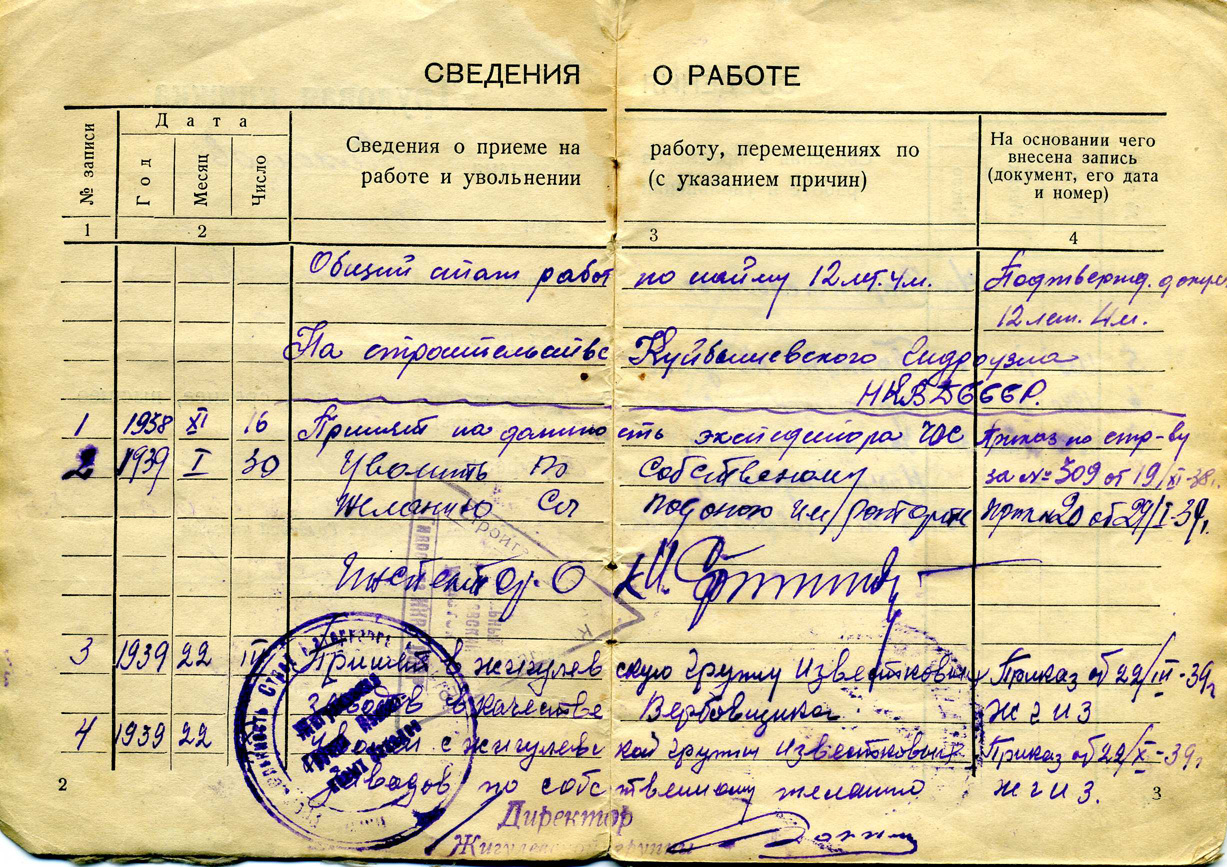 СВЕДЕНИЯ О РАБОТЕ
№ записи
Дата
Год
Месяц
Число
Сведения о приеме на работу, перемещениях по
работе и увольнении (с указанием причин)
На основании чего
внесена запись
(документ, его дата
и номер)
1 2 3 4
Общий стаж работ по найму 12 лет. 4 м. Подтвержд.
12 лет. 4 м.
На строительстве Куйбышевского Гидроузла
НКВД СССР.
1 1938 XI 16 Принят на должность экспедитора Приказ по стр-ву
2 1939 I 30 Уволить По Собственому за № 309 от 19/XI-38г.
Желанию 20 от 29/I-39г.
Инспектор О К
3 1939 22 III Принят в жигулевскую группу Известковых Приказ от 22/III-39г
заводов в качестве Вербовщика ЖГИЗ
4 1939 22 Уволен с жигулевской группы Известковых Приказ от 22/X-39г
Заводов по собственному желанию ЖГИЗ.
Директор
Жигулевской группы
2 3